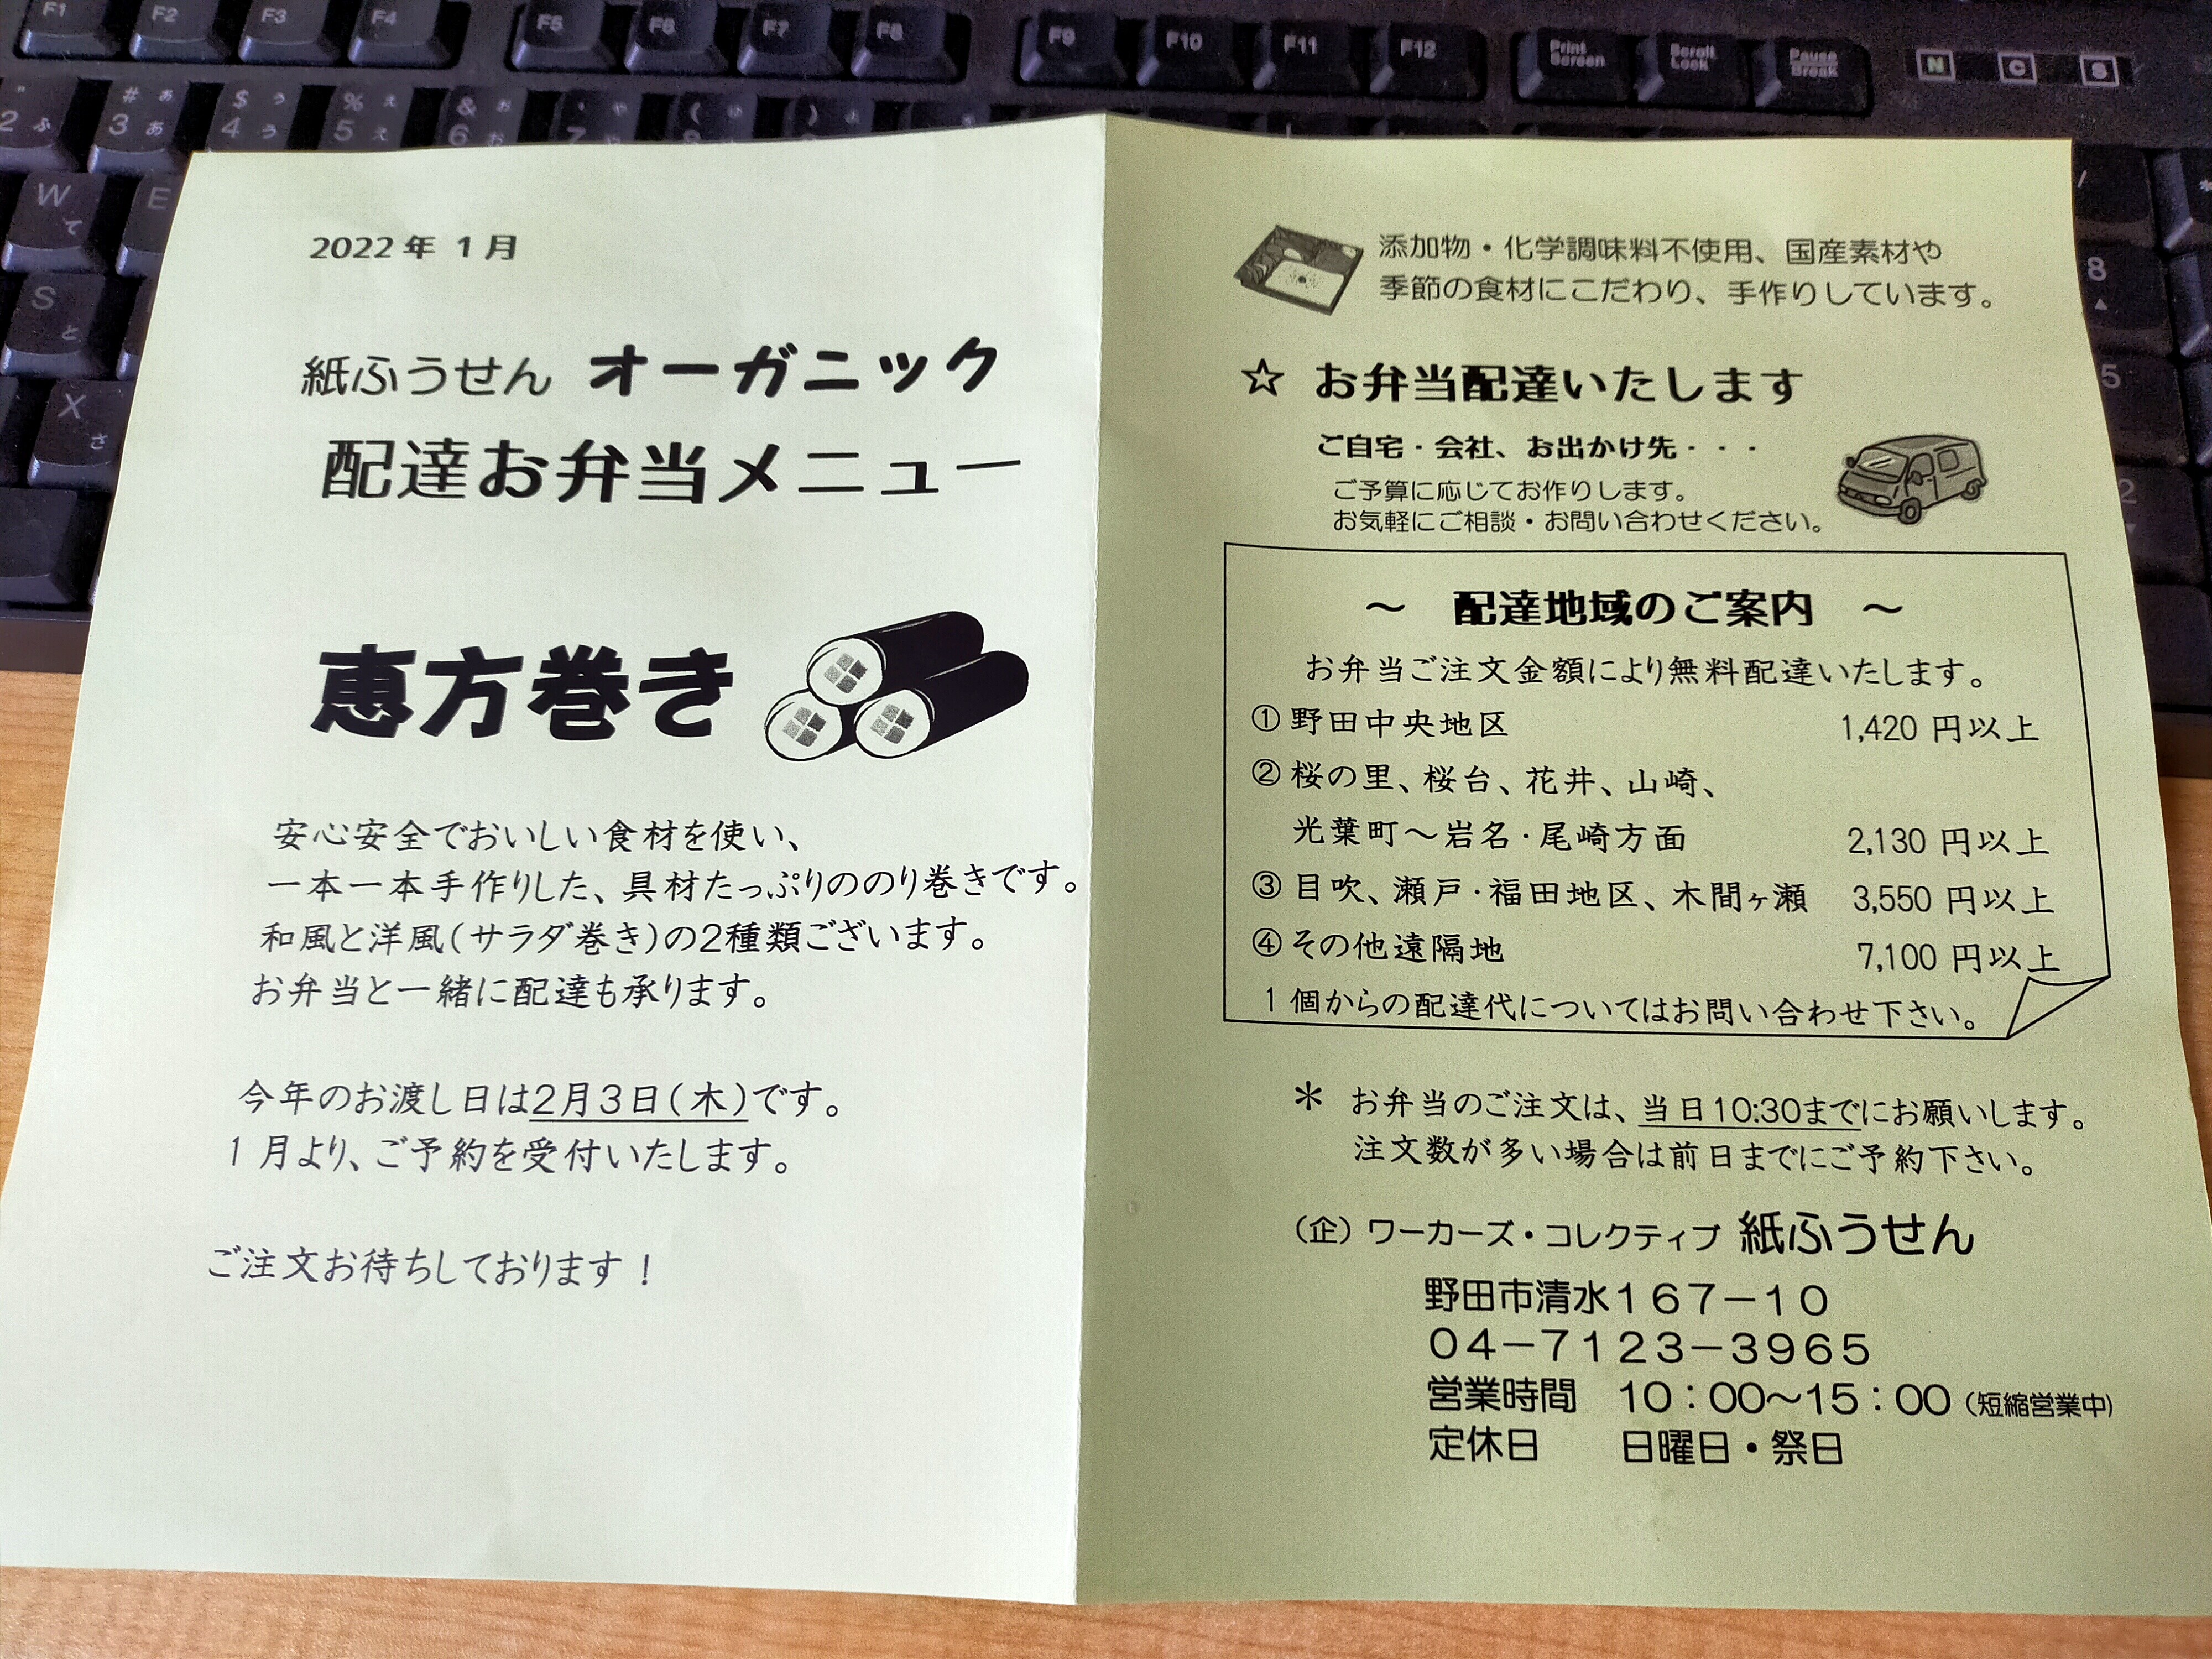 F1 F2 F3 F4 F5 F6 F7 F8 F9 F10 F11 F12 Print Screen Scroll Lock Pause Break
2022年 1月
紙ふうせん オーガニック
配達お弁当メニュー
恵方巻き
安心安全でおいしい食材を使い、
一本一本手作りした、具材たっぷりののり巻きです。
和風と洋風(サラダ巻き)の2種類ございます。
お弁当と一緒に配達も承ります。
今年のお渡し日は2月3日(木)です。
1月より、ご予約を受付いたします。
ご注文お待ちしております！
添加物・化学調味料不使用、国産素材や
季節の食材にこだわり、手作りしています。
☆ お弁当配達いたします
ご自宅・会社、お出かけ先・・・
ご予算に応じてお作りします。
お気軽にご相談・お問い合わせください。
～ 配達地域のご案内 ～
お弁当ご注文金額により無料配達いたします。
①野田中央地区 1,420 円以上
②桜の里、桜台、花井、山崎、
光葉町～岩名・尾崎方面 2,130 円以上
③目吹、瀬戸・福田地区、木間ヶ瀬 3,550 円以上
④その他遠隔地 7,100 円以上
1個からの配達代についてはお問い合わせ下さい。
＊ お弁当のご注文は、当日10:30までにお願いします。
注文数が多い場合は前日までにご予約下さい。
（企）ワーカーズ・コレクティブ 紙ふうせん
野田市清水１６７－１０
０４－７１２３－３９６５
営業時間 １０：００～１５：００（短縮営業中）
定休日 日曜日・祭日